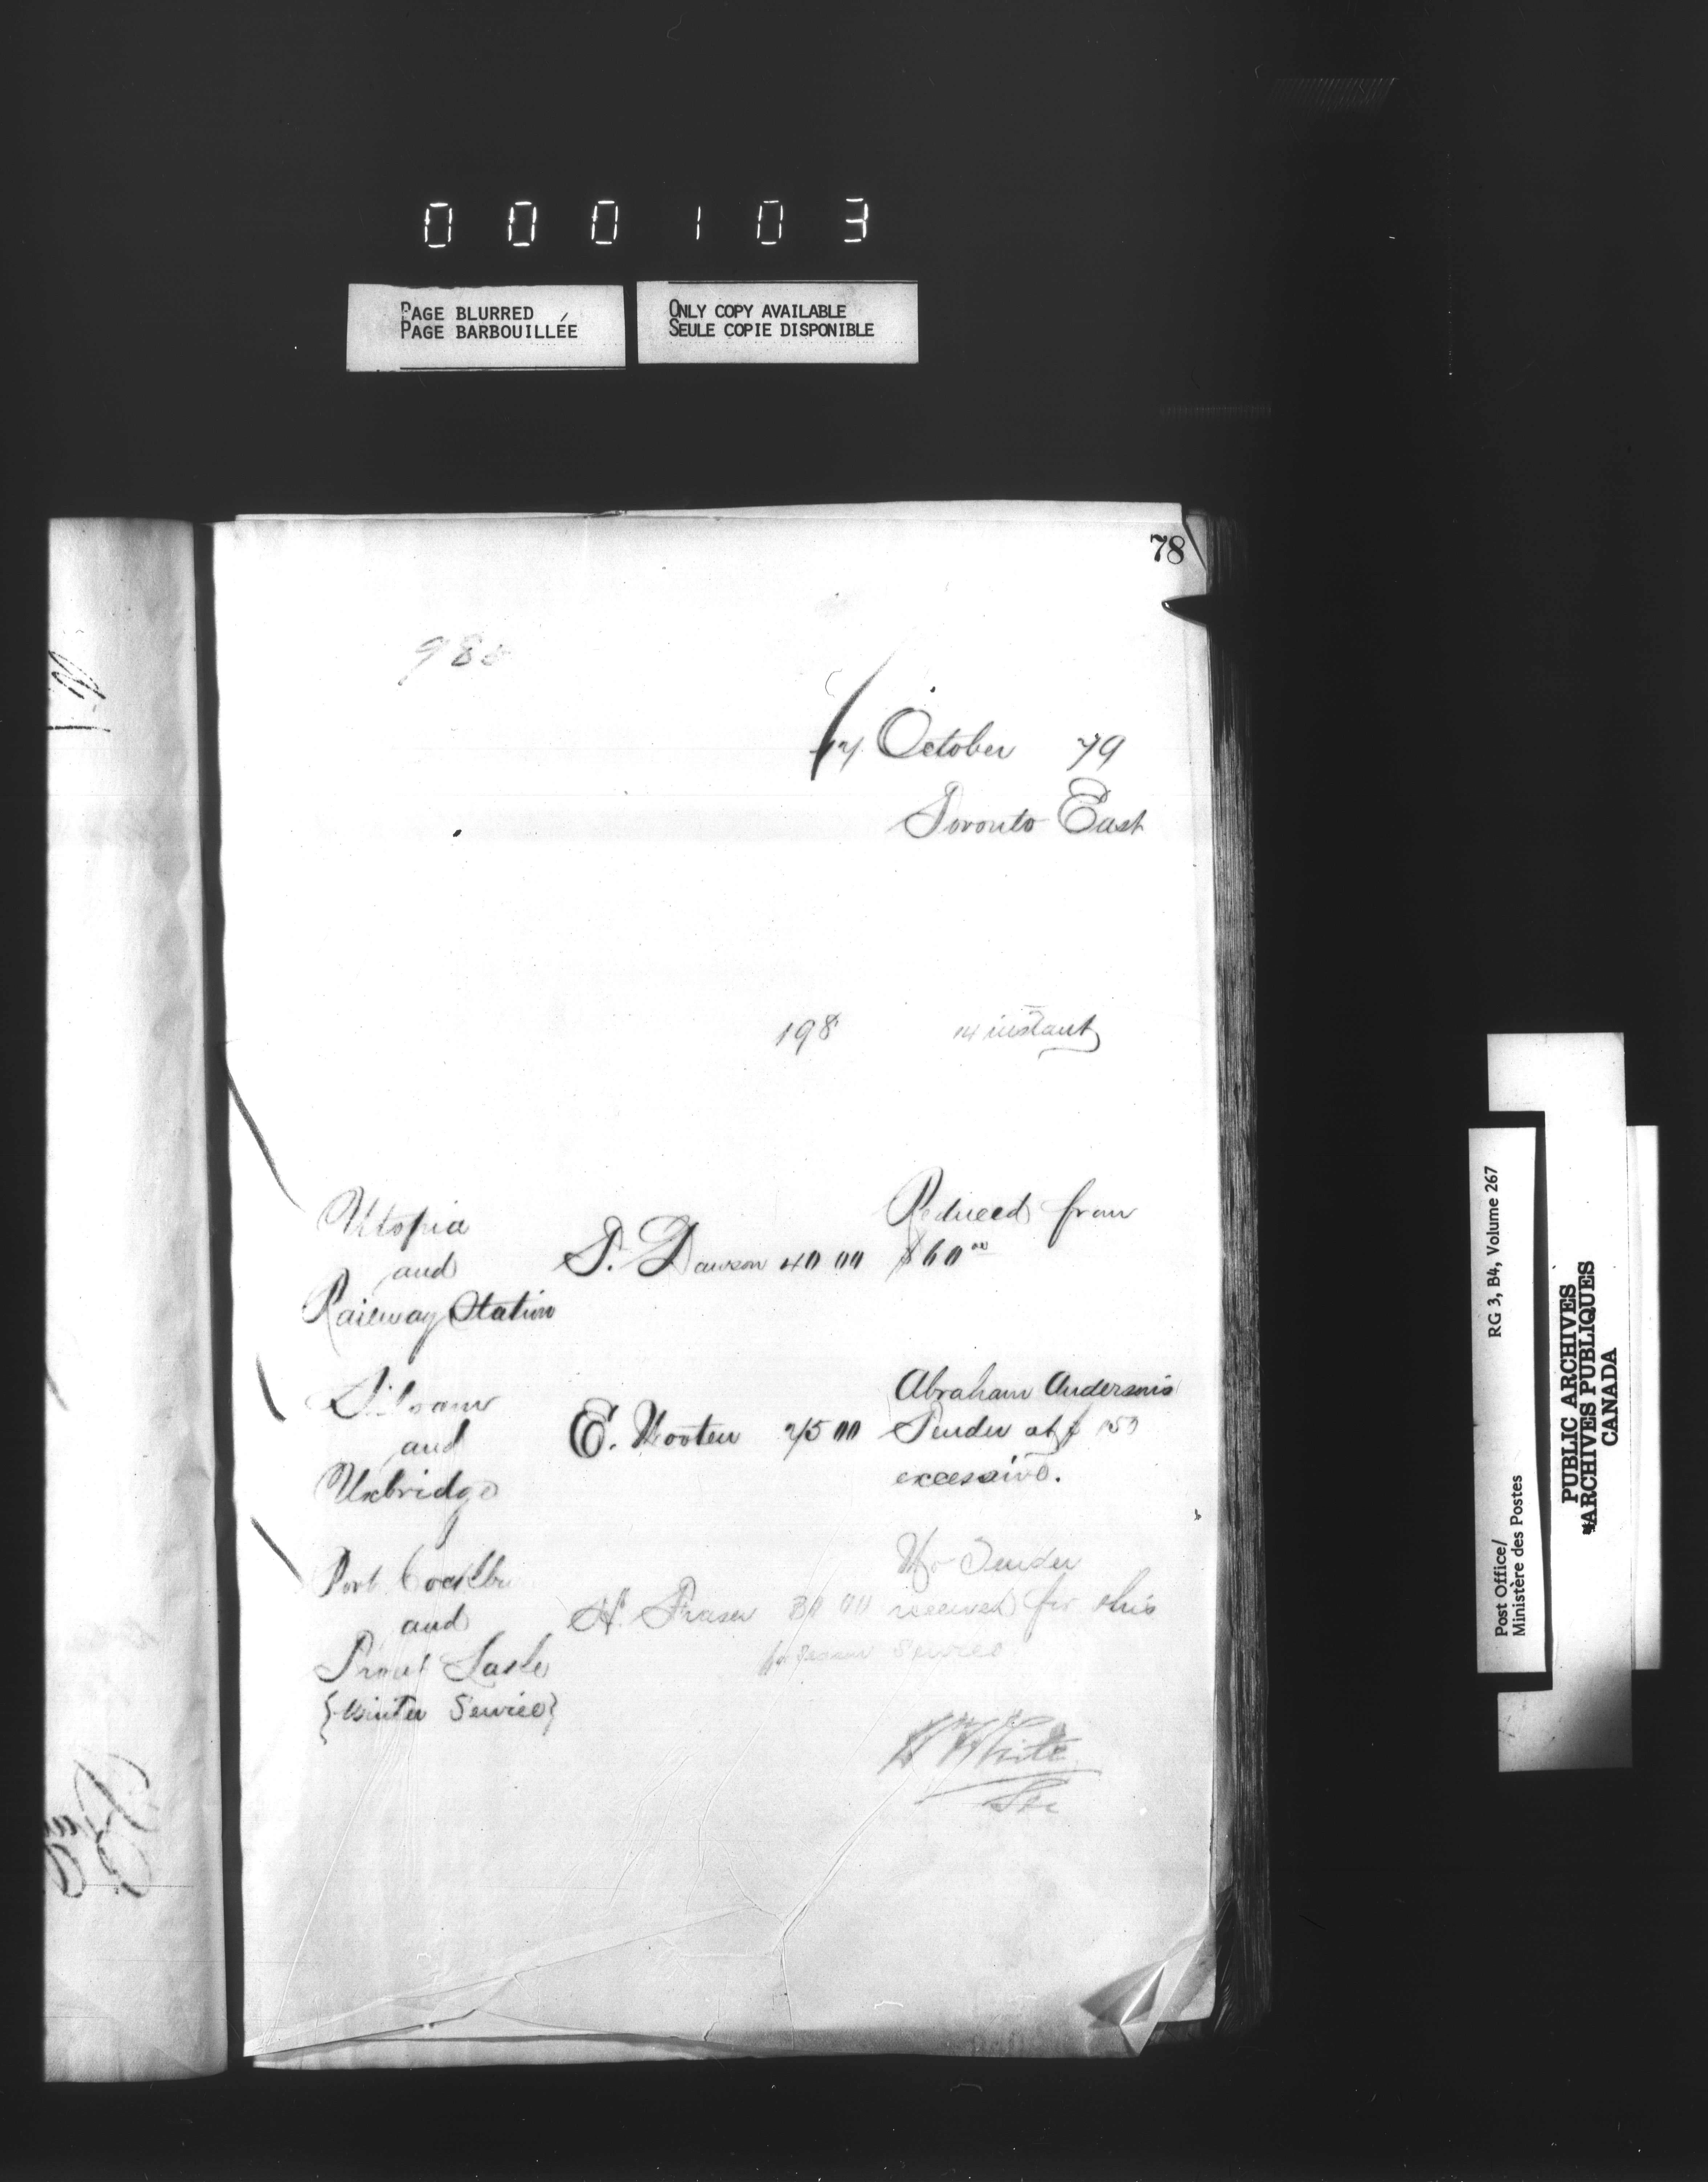 000103
PAGE BLURRED
PAGE BARBOUILLÉE
ONLY COPY AVAILABLE
SEULE COPIE DISPONIBLE
78
October 79
Toronto East
198 14 instant
Utopia
and
Railway Station
Dawson 40 00
Reduced from
$60 00
Siloam
and
Uxbridge
E. Wooten 75 00
Abraham Anderson's
Tender at $ 150
excessive.
Port
and
Trout Lake
{Winter Service}
H. Fraser 30 00
No Tender
received for this
Service
White
Sec
RG 3, B4, Volume 267
Post Office/
Ministère des Postes
PUBLIC ARCHIVES
ARCHIVES PUBLIQUES
CANADA